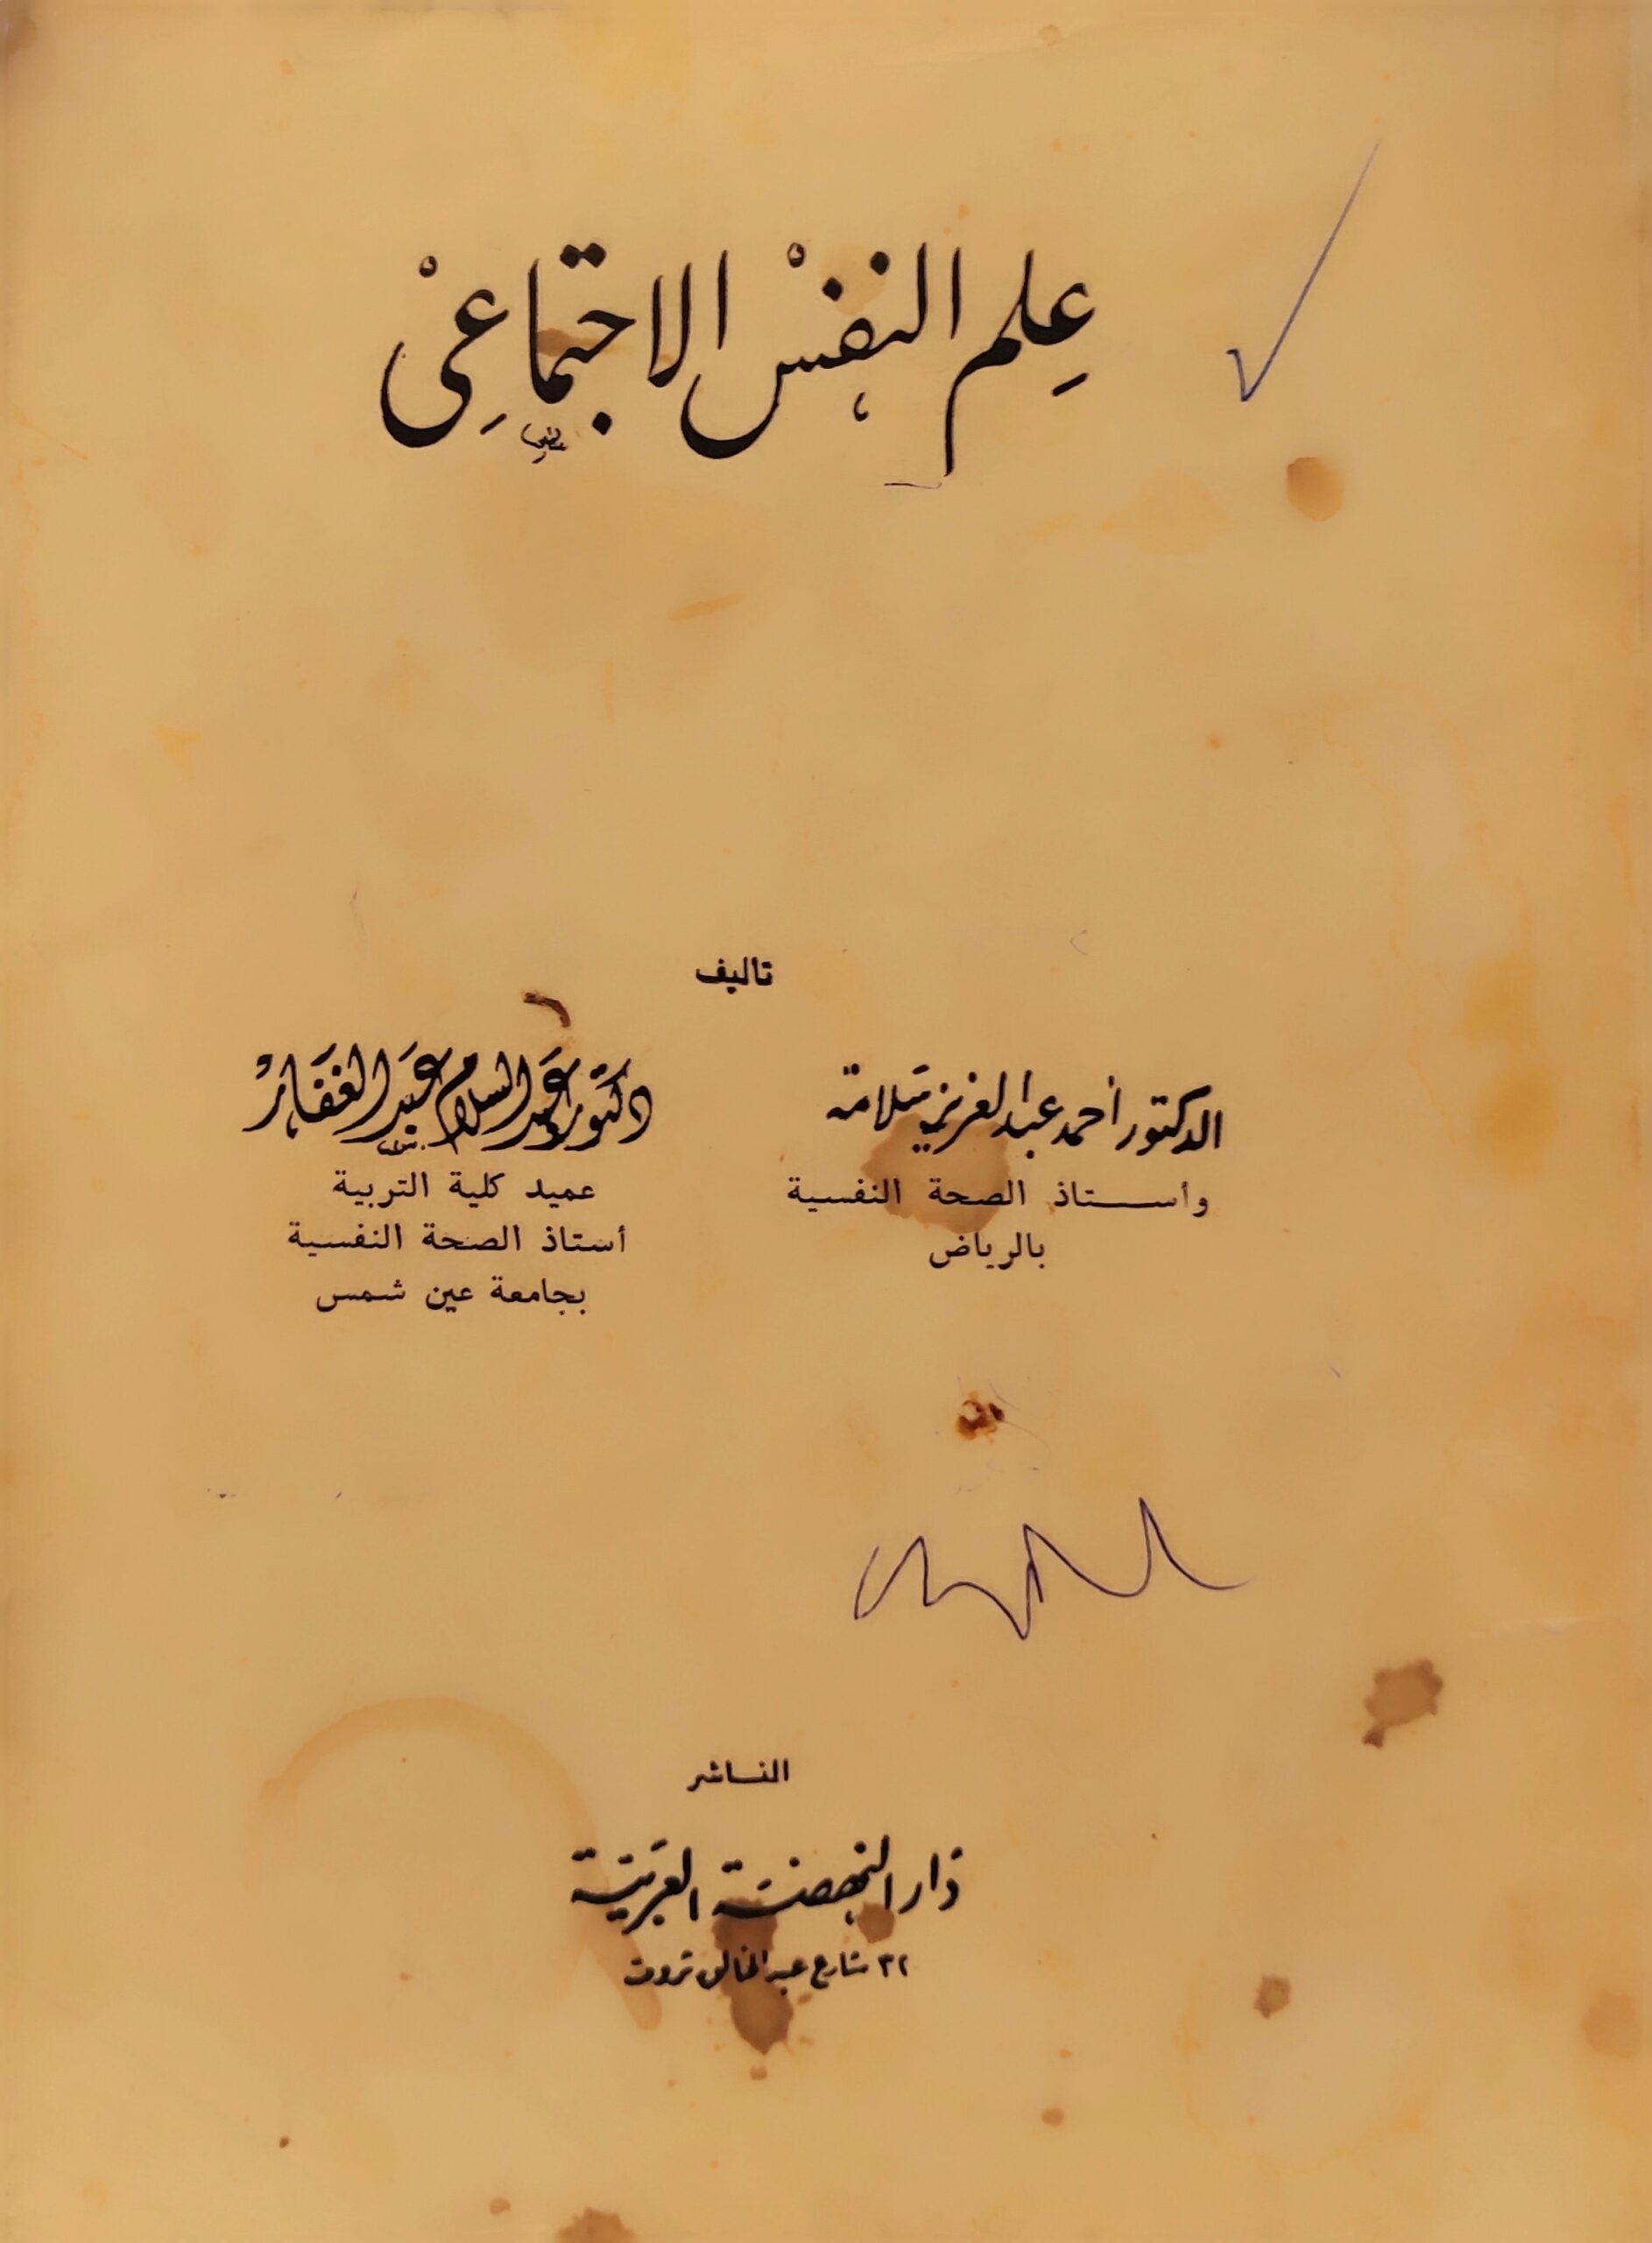 علم النفس الاجتماعي
تاليف
الدكتور أحمد عبد العزيز سلامة
وأستاذ الصحة النفسية
بالرياض
دكتور عبد السلام عبد الغفار
عميد كلية التربية
أستاذ الصحة النفسية
بجامعة عين شمس
الناشر
دار النهضة العربية
٣٢ شارع عبد الخالق ثروت